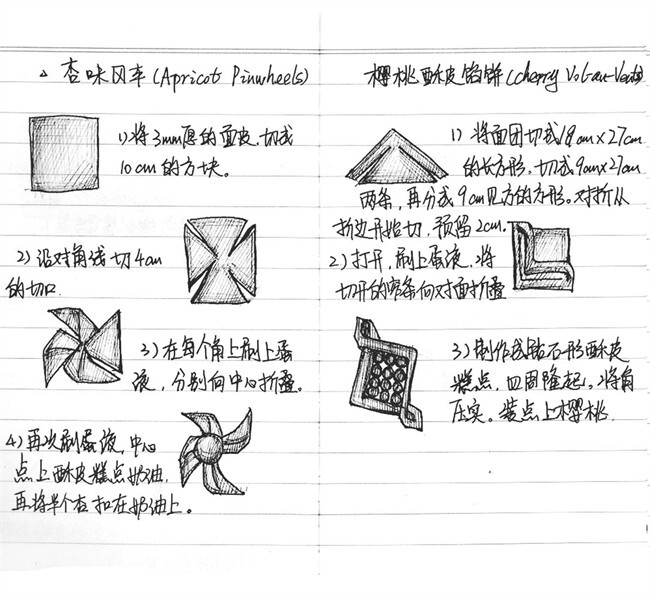 杏味风车(Apricot Pinwheels)
1)将3mm厚的面皮.切成
10cm的方块。
2)沿对角线切4cm
的切口
3)在每个角上刷上蛋
液,分别向中心折叠。
4)再次刷蛋液,中心
点上酥皮糕点奶油,
再将半个杏扣在奶油上。
樱桃酥皮馅饼(cherry Vol-au-Vents)
1)将面团切成18cm×27cm
的长方形,切成9cm×27cm
两条,再分成9cm见方的方形。对折从
折边开始切,预留2cm.
2)打开,刷上蛋液,将
切开的窄条向对面折叠
3)制作成钻石形酥皮
糕点,四周隆起。将角
压实。装点上樱桃.